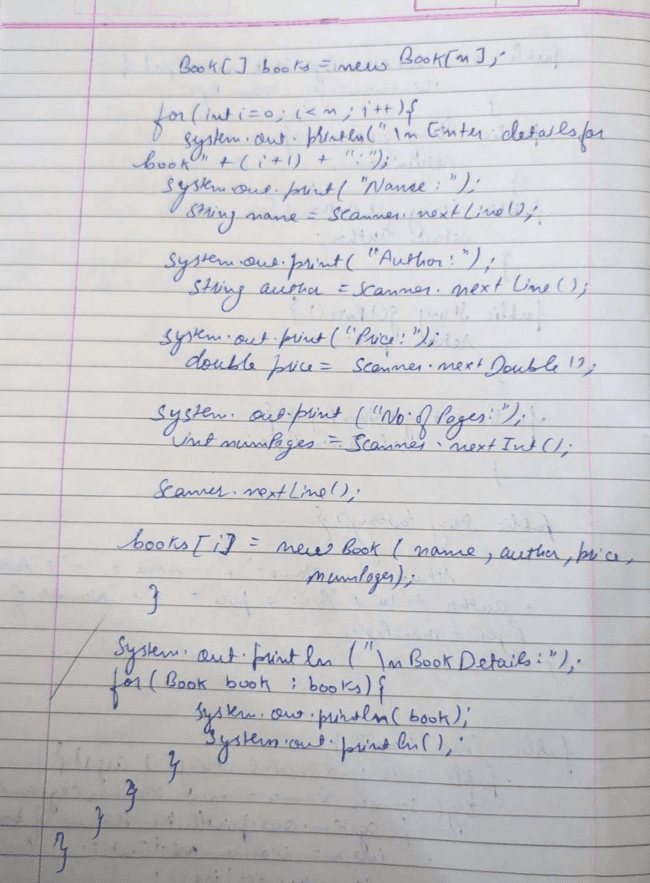 Book[] books = new Book[n];
for(int i=0; i<n; i++){
System.out.println("\n Enter details for
book" + (i+1) + ":");
System.out.print("Name:");
String name = scanner.nextLine();
System.out.print("Author:");
String author = scanner.nextLine();
System.out.print("Price:");
double price = scanner.nextDouble();
System.out.print("No. of Pages:");
int numPages = scanner.nextInt();
Scanner.nextLine();
books[i] = new Book(name, author, price,
numPages);
}
System.out.println("\n Book Details:");
for(Book book : books){
System.out.println(book);
System.out.println();
}
}
}
}